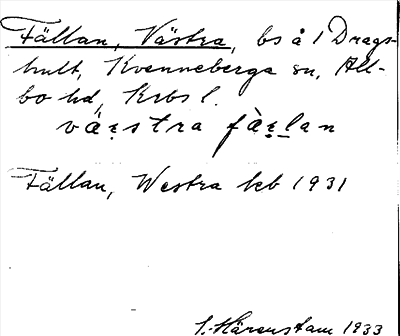 Fällan, Västra, bs å 1 Drags-
hult, Kvenneberga sn, All-
bo hd, Krbs l.
vä̀ṛstra fä̀ṛlan
Fällan, Westra keb 1931
S. Härenstam 1933